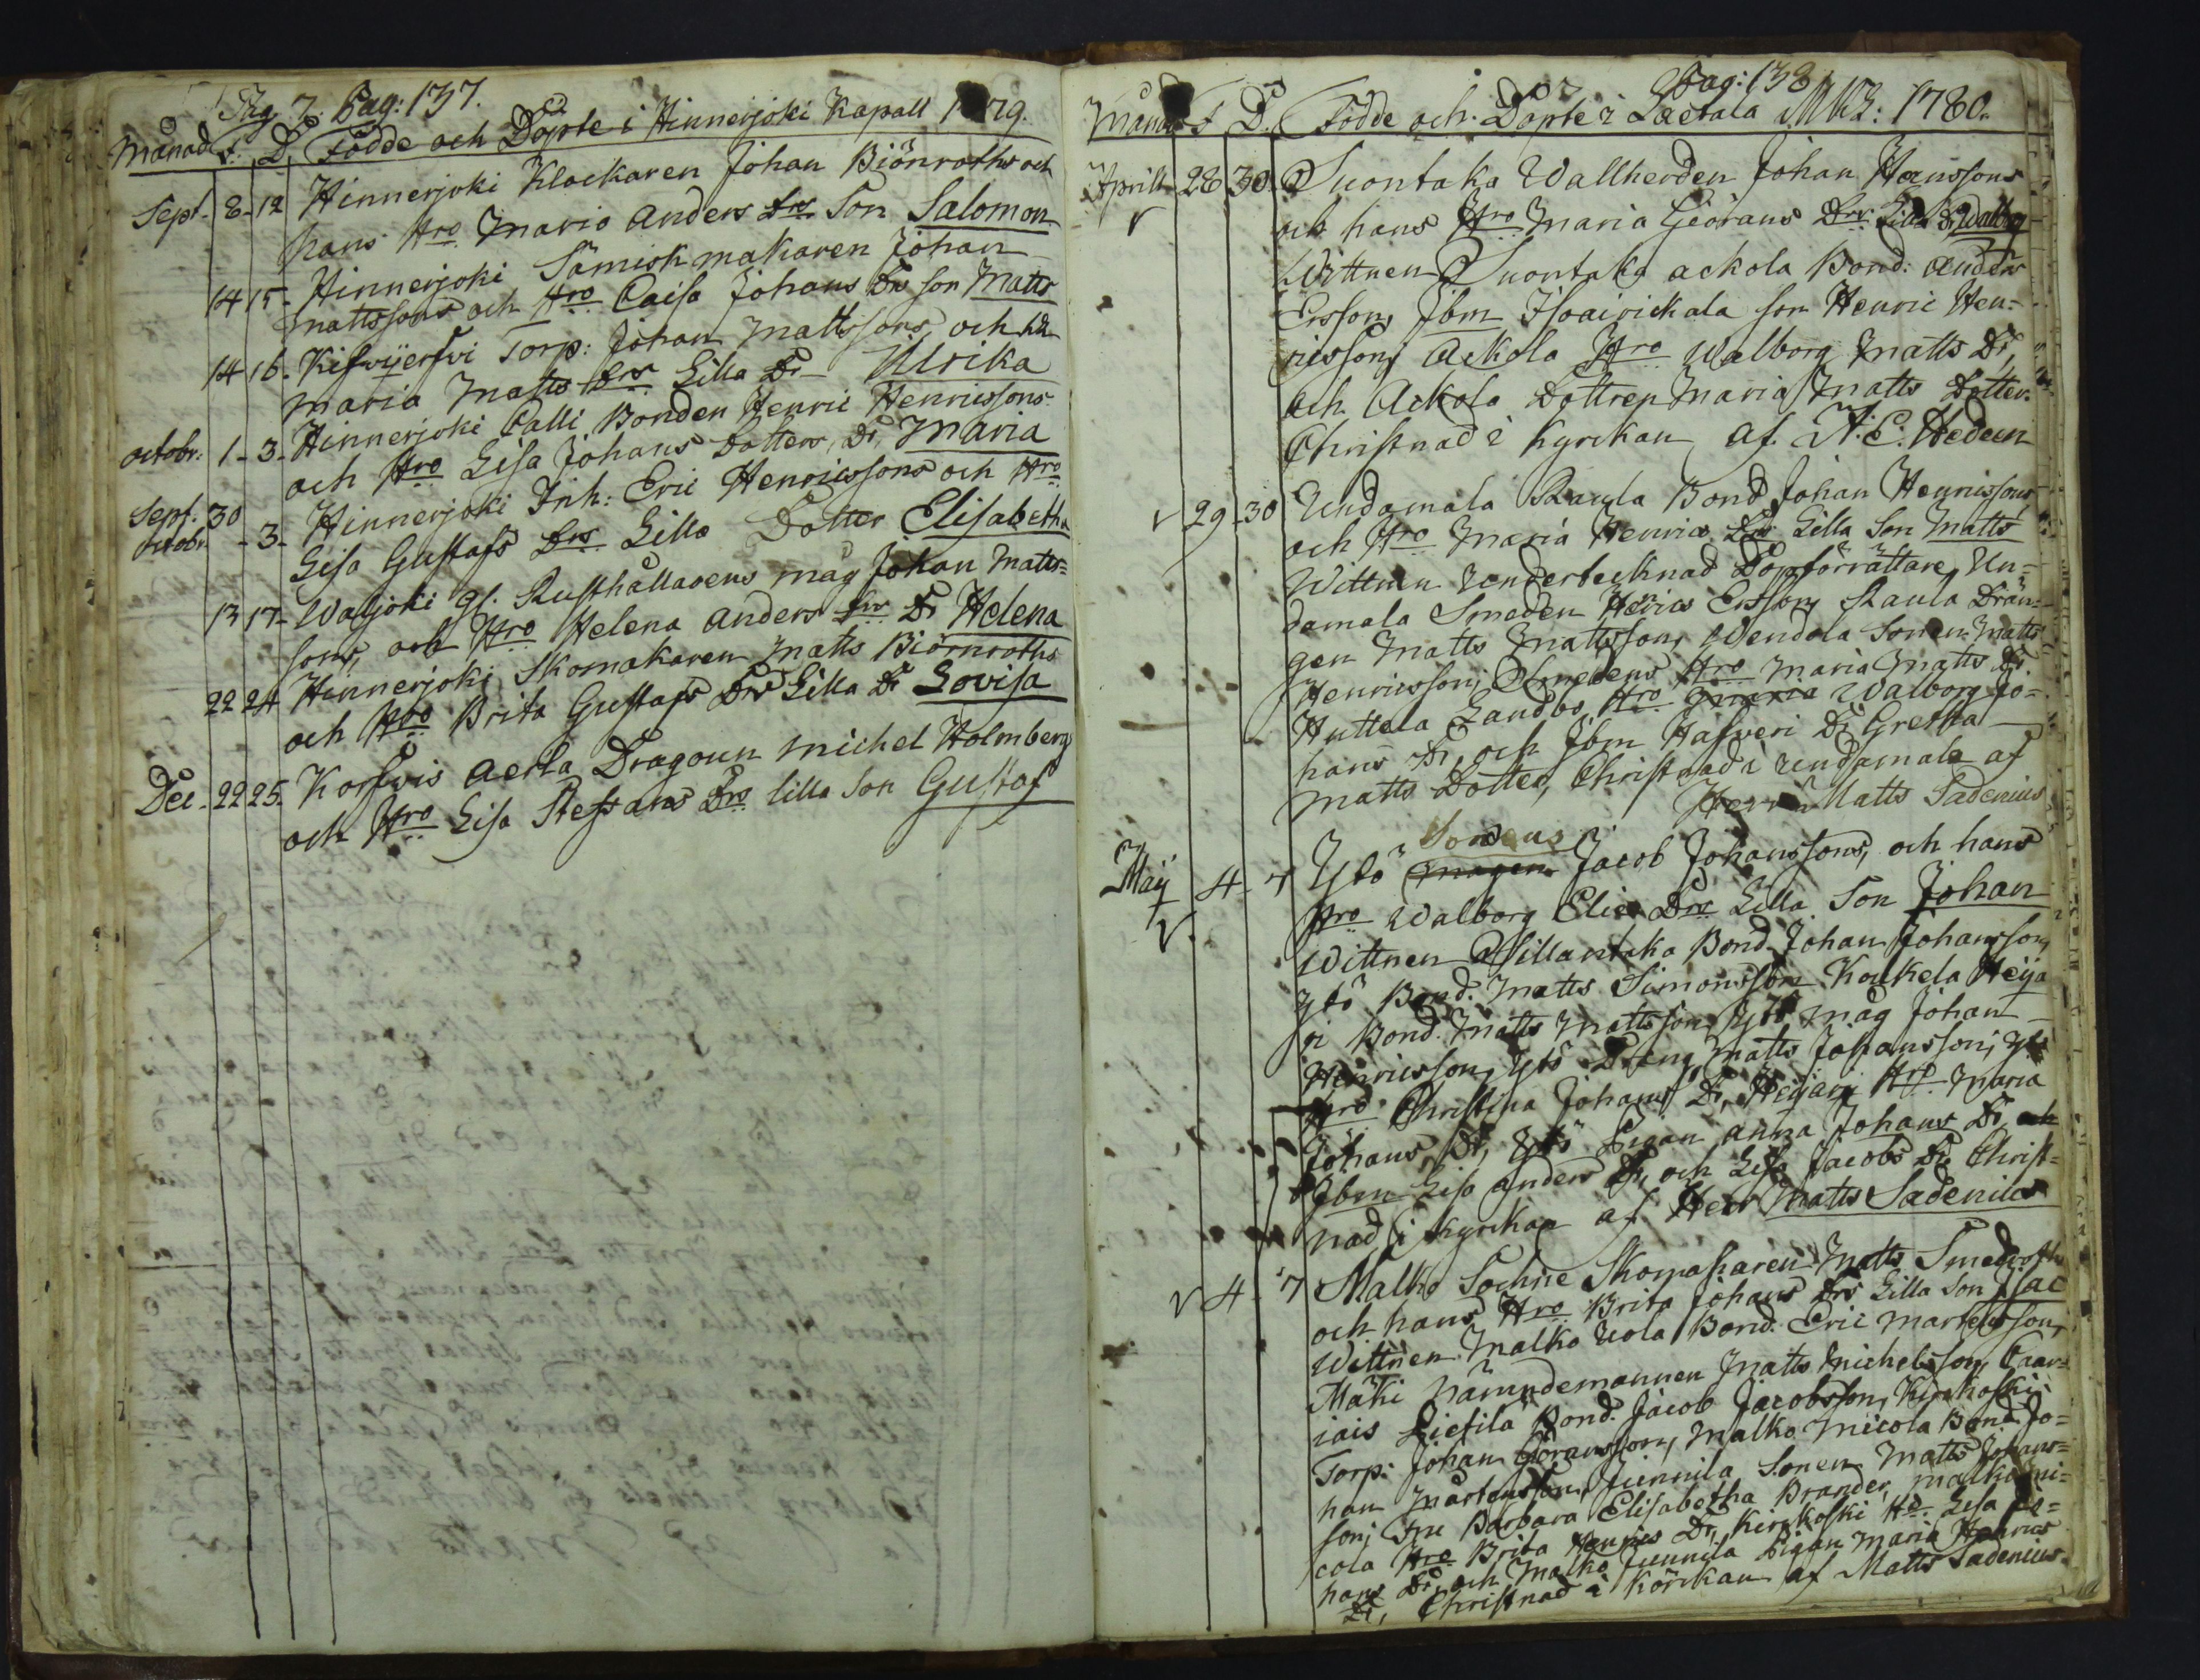 Pag: 137.
Månad F. D. Födde och Döpte i Hinnerjoki Kapall 1779.
Sept. 8-12 Hinnerjoki Klockaren Johan Biönroths och
hans Hro Maria Anders Drs Son Salomon
14 15- Hinnerjoki Sämisk makaren Johan
Mattssons och Hro Caisa Johans Drs son Matts
14 16. Torp: Johan Mattssons, och
Maria Matts Drs Lilla Dr Ulrika
octobr: 1-3- Hinnerjoki Palli Bonden Henric Henricssons
och Hro Lisa Johans Dotters, Dr, Maria
Sept. 30
octobr. -3- Hinnerjoki Inh: Eric Henricssons och Hro
Lisa Gustafs Drs Lilla Dotter Elisabetha
13 17- Waljoki gl. Rusthållarens måg Johan Matts=
sons, och Hro Helena Anders Drs Dr Helena
22 24 Hinnerjoki Skomakaren Matts Biörnroths
och Hro Brita Gustafs Drs Lilla Dr Lovisa
Dec. 22 25. Korfvis Aerla Dragoun Michel Holmberg
och Hro Lisa Steffans Drs lilla Son Gustaf
Pag: 138
Månad F D. Födde och Döpte i Laetala MK: 1780.
Aprill 28 30. Suontaka Wallherden Johan Hanssons
och hans Hro Maria Geörans Drs Lilla Dr Walborg
Wittnen Suontaka ackola Bond: Anders
Ersson, Jbm Isoairickala son Henric Hen=
ricsson, Ackola Hro Walborg Matts Dr,
och Ackola Dottren Maria Matts Dotter.
Christnad i Kyrckan af A. C. Hedeen
v 29-30 Undamala Raula Bond Johan Henricssons
och Hro Maria Henrics Drs Lilla Son Matts
Wittnen Undertecknad Döpförrättare, Un=
damala Smeden Henric Ersson, Raula Drän=
gen Matts Mattsson, Wendola Sonen Matts
Henricsson, Smedens Hro Maria Matts Dr
Huttela Landbo Hro Maria Walborg Jo=
hans Dr, och Jbm Hafveri Dr Gretha
Matts Dotter, Christnad i Undamala af
Herr Matts Sadenius
Sonens
Maij 4-7 Ytö Magen Jacob Johanssons, och hans
v. Hro Walborg Elis Drs Lilla Son Johan
Wittnen Sillantaka Bond. Johan Johansson,
Ytö Bond. Matts Simonsson Koukela Heija
ri Bond. Matts Mattsson, Ytö måg Johan
Henricsson, Ytö Dreng Matts Johansson; Ytö
Hro Christina Johans Dr, Heijari Hro Maria
Johans, Dr, Ytö Pigan Anna Johans Dr, och
Jbm Lisa Anders Dr, och Lisa Jacobs Dr Christ=
nad i Kyrckan af Herr Matts Sadenius
v 4-7 Malko Sochne Skomakaren Matts Smedroths
och hans Hro Brita Johans Drs Lilla Son Isac
Wittnen Malko Uola Bond. Eric Martensson,
Mäki Nämndemannen Matts Michelsson, Caar=
iais Bond. Jacob Jacobsson, Kirckoski
Torp: Johan Göransson, Malko Micola Bond. Jo=
han Mårtensson, Junnila Sonen Matts Johans=
son; Fru Barbara Elisabetha Brander, Malko Mi=
cola Hro Brita Henrics Dr, Kirckoski Ho Lisa Jo=
hans Dr, och Malko Junnila Pigan Maria Henrics
Dr, Christnad i Körckan af Matts Sadenius.